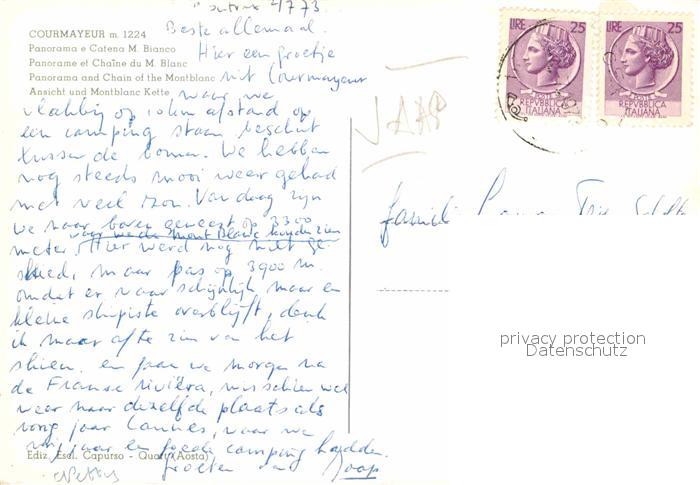 2/7 73
COURMAYEUR m. 1224
Panorama e Catena M. Bianco
Panorame et Chaîne du M. Blanc
Panorama and Chain of the Montblanc
Ansicht und Montblanc Kette
Beste allemaal.
Hier een groetje
uit Courmayeur
waar we
vlakbij op 10 km afstand op
een camping staan beschut
tussen de bomen. We hebben
nog steeds mooi weer gehad
met veel zon. Vandaag zijn
we naar boven geweest op 3300
waar we de Mont Blanc konden zien
meter. Hier werd nog niet ge-
skied, maar pas op 3900 m.
omdat er waarschijnlijk maar een
kleine skipiste overblijft, denk
ik maar afte zien van het
skiën. en gaan we morgen na
de Franse rivièra, misschien wel
weer naar dezelfde plaats als
vorig jaar Cannes, waar we
vorig jaar een goede camping hadden.
groeten van Joop
Ediz. Escl. Capurso - Quart (Aosta)
JAAP
LIRE 25
POSTE
REPVBBLICA
ITALIANA
LIRE 25
POSTE
REPVBBLICA
ITALIANA
familie
privacy protection
Datenschutz